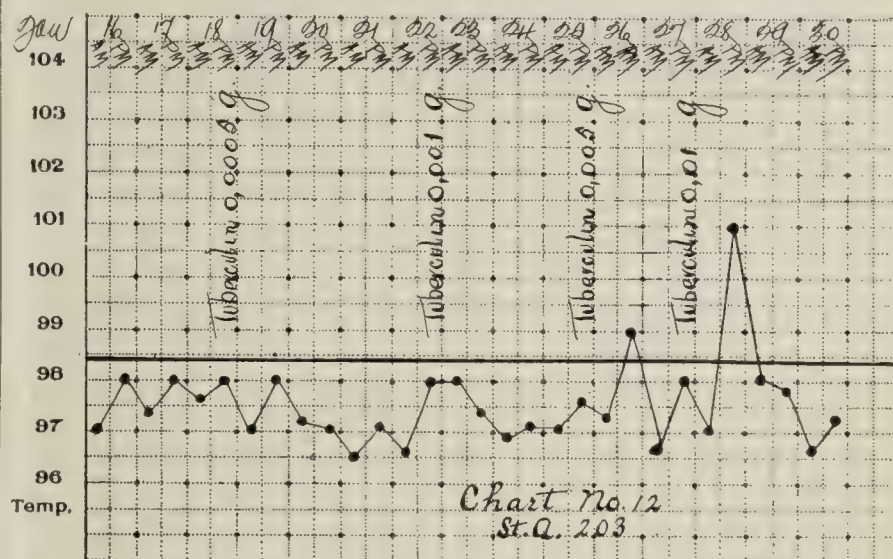 Jan 16 17 18 19 20 21 22 23 24 25 26 27 28 29 30
104
103
102
101
100
99
98
97
96
Temp.
Tuberculin 0,0005 g.
Tuberculin 0,001 g.
Tuberculin 0,005 g.
Tuberculin 0,01 g.
Chart No. 12
St. A. 203